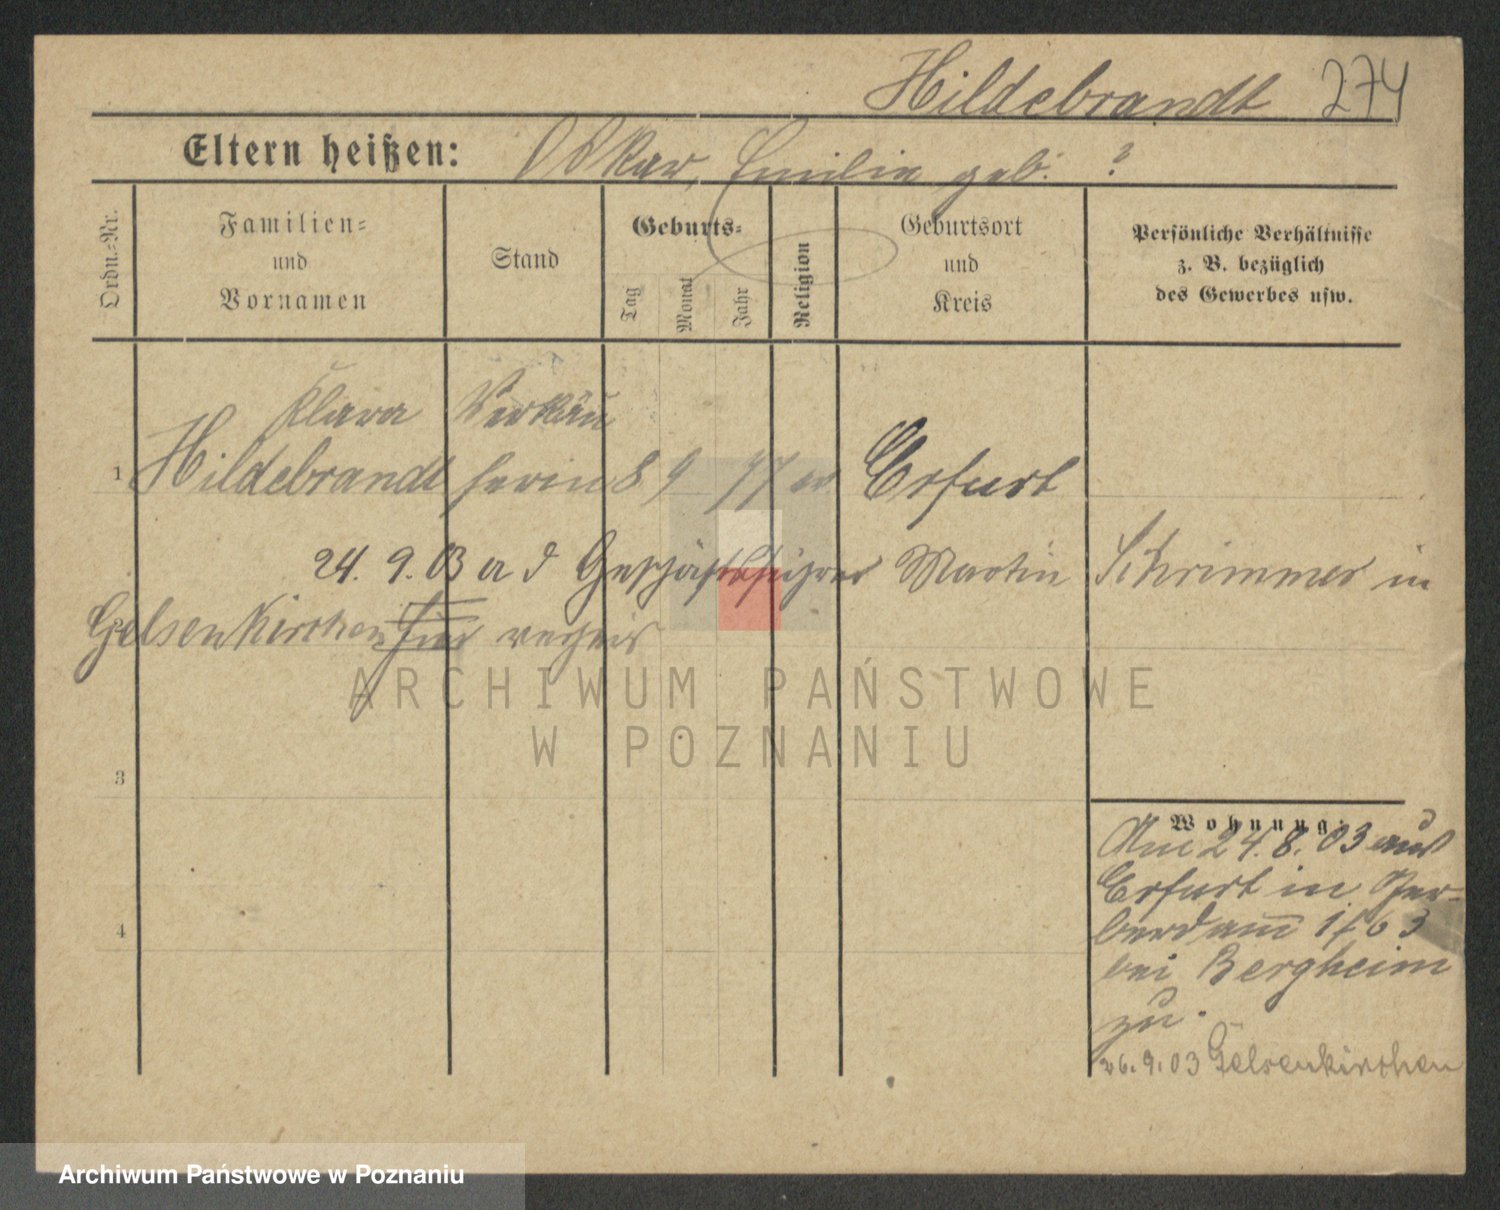 Hildebrandt 274
Eltern heißen: Oskar, Emilie geb. ?
Ordn.-Nr.
Familien-
und
Vornamen
Stand
Geburts-
Tag
Monat
Jahr
Religion
Geburtsort
und
Kreis
Persönliche Verhältnisse
z. B. bezüglich
des Gewerbes usw.
Klara Verkäu
1 Hildebrandt ferin 8 9 77 ev Erfurt
24. 9. 03 a d Geschäftsführer Martin Schrimmer in
Gelsenkirchen
ARCHIWUM PAŃSTWOWE
W POZNANIU
3
4
Wohnung:
Am 24. 8. 03 aus
Erfurt in
bei Bergheim
zu.
26. 9. 03 Gelsenkirchen
Archiwum Państwowe w Poznaniu